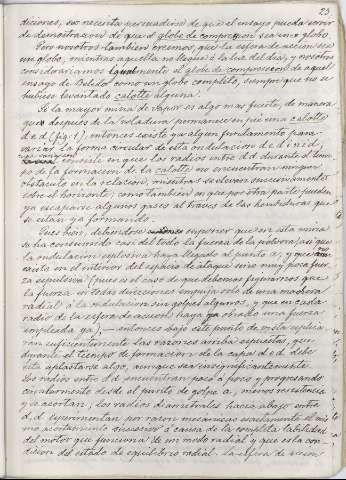 23
diciones, se necesita persuadirse de que el ensayo pueda servir
de demostracion de que el globo de compresion sea un globo.
Pero nosotros tambien creemos, que la esfera de accion sea
un globo, mientras aquella no llegue á la luz del dia, y nosotros
consideraríamos igualmente el globo de compresion de aquel
ensayo de Belidor como un globo completo, siempre que no se
hubiese levantado calotte alguna.
Si la mayor mina de vapor es algo mas fuerte, de manera
que despues de la voladura permanece en pié una calotte
d e d (fig. 1), entonces existe ya algun fundamento para
variar la forma circular de esta ondulacion d e l i n i d,
consiste en que los radios entre d d durante el tiem-
po de la formacion de la calotte no encuentran ningun
obstáculo en la relacion, mientras se elevan sucesivamente
sobre el horizonte, como tambien en que por otra parte pueden
ya escaparse algunos gases al través de las hendiduras que
se están ya formando.
Pues bien, debiéndose suponer que en esta mina
se ha consumido casi del todo la fuerza de la pólvora, asi que
la ondulacion esplosiva haya llegado al punto a, y que
exista en el interior del espacio de ataque una muy poca fuer-
za espulsiva (pues es el caso de que debemos figurarnos que
la fuerza en todas direcciones empuja solo de una manera
radial á la ondulacion sin golpes algunos, y que en cada
radio de la esfera de accion haya ya obrado una fuerza
empleada ya), — entonces bajo este punto de vista esplica-
ran suficientemente las razones arriba espuestas, que
durante el tiempo de formacion de la capa d e d debe
esta aplastarse algo, aunque sea insignificantemente.
Los radios entre d d encuentran poco á poco y progresando
circularmente desde el punto de golpe a, menos resistencia
y se acortan; los radios diametrales hacia abajo entre
d, d esperimentan por razon mecánica exactamente el mis-
mo acortamiento sucesivo á causa de la completa labilidad
del motor que funciona de un modo radial y que esta con-
dicion del estado de equilibrio radial. La esfera de accion